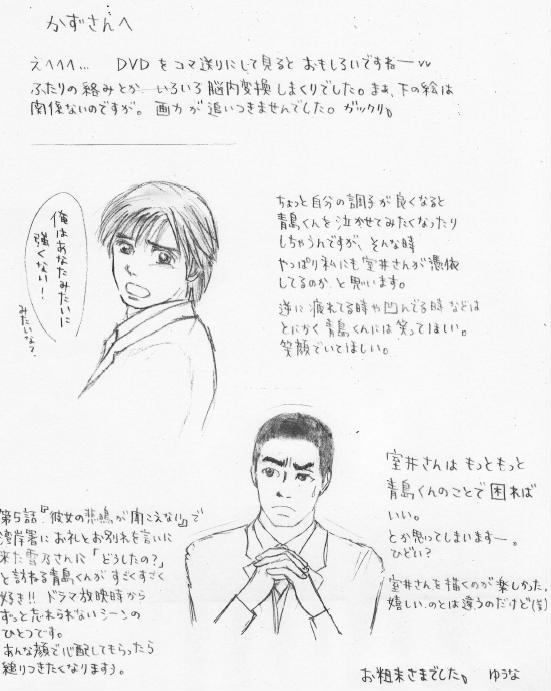 かずさんへ
えへへへ… DVDをコマ送りにして見るとおもしろいですねー
ふたりの絡みとか いろいろ脳内変換しまくりでした。まぁ、下の絵は
関係ないのですが。画力が追いつきませんでした。ガックリ。
俺はあなたみたいに
強くない!
みたいな?
ちょっと自分の調子が良くなると
青島くんを泣かせてみたくなったり
しちゃうんですが、そんな時
やっぱり私にも室井さんが憑依
してるのか、と思います。
逆に疲れてる時や凹んでる時などは
とにかく青島くんには笑ってほしい。
笑顔でいてほしい。
室井さんはもっともっと
青島くんのことで困れば
いい。
とか思ってしまいますー。
ひどい?
室井さんを描くのが楽しかった。
嬉しい、のとは違うのだけど(笑)
第5話『彼女の悲鳴が聞こえない』で
湾岸署にお礼とお別れを言いに
来た雪乃さんに「どうしたの?」
と訪ねる青島くんがすごくすごく
好き!! ドラマ放映時から
ずっと忘れられないシーンの
ひとつです。
あんな顔で心配してもらったら
縋りつきたくなりますよ。
お粗末さまでした。 ゆうな